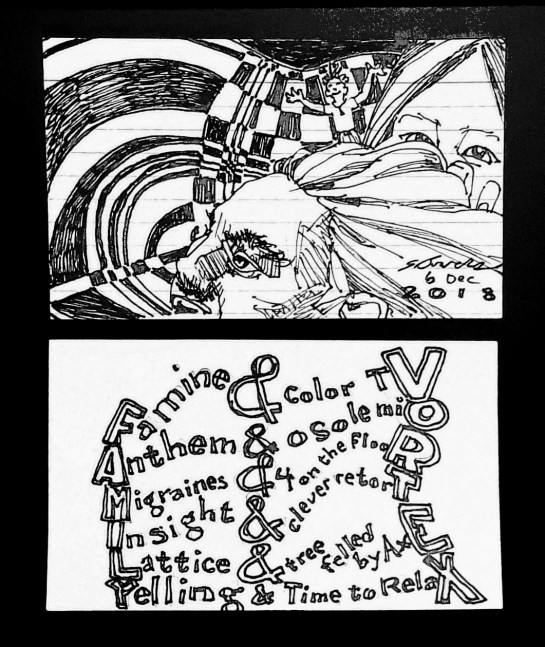 6 Dec
2018
Famine & Color TV
Anthem & O Sole miO
Migraines & 4 on the FlooR
Insight & clever retorT
Lattice & tree felled by AxE
Yelling & Time to RelaX